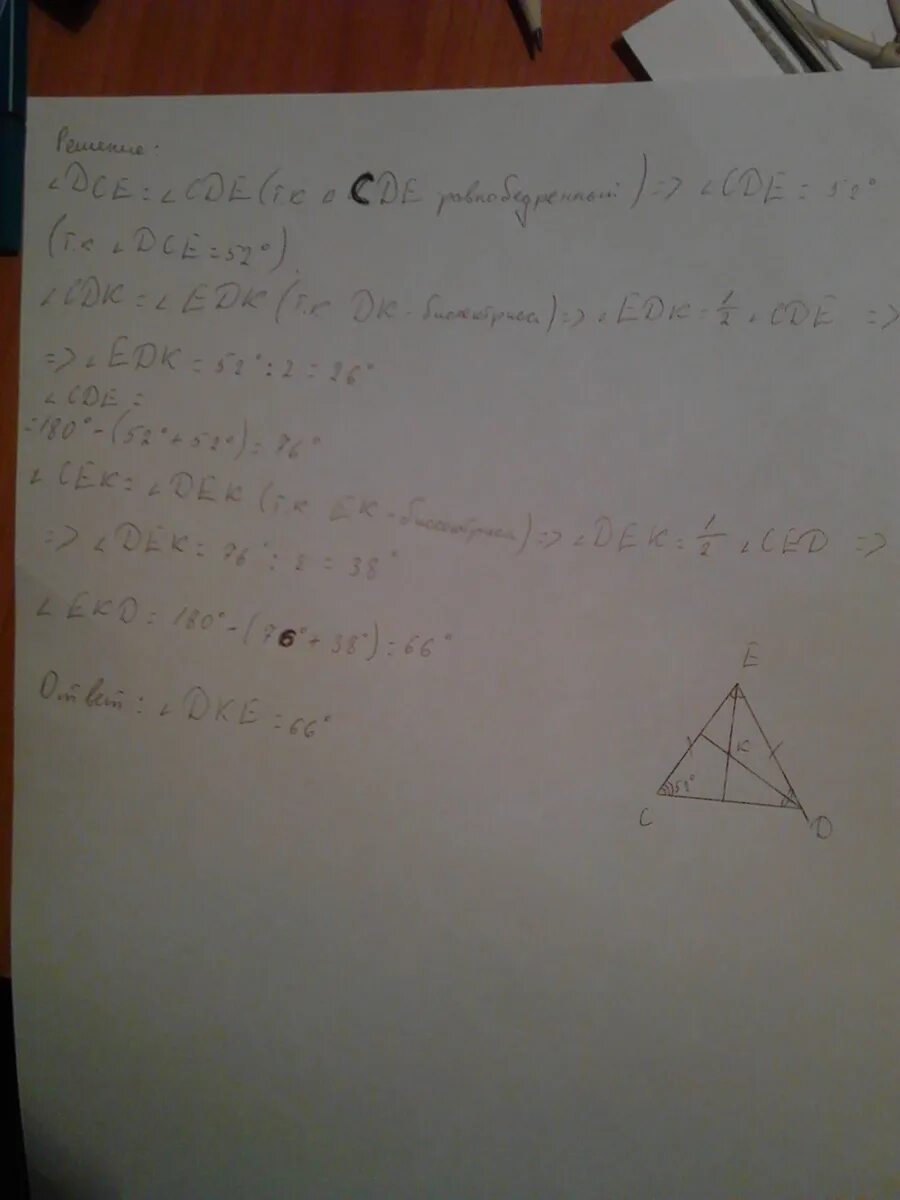 Решение:
∠DCE = ∠CDE (т.к △ CDE равнобедренный) => ∠CDE = 52°
(т.к ∠DCE = 52°)
∠CDK = ∠EDK (т.к DK - биссектриса) => ∠EDK = 1/2 ∠CDE =>
=> ∠EDK = 52° : 2 = 26°
∠CDE =
= 180° - (52° + 52°) = 76°
∠CEK = ∠DEK (т.к EK - биссектриса) => ∠DEK = 1/2 ∠CED =>
=> ∠DEK = 76° : 2 = 38°
∠EKD = 180° - (76° + 38°) = 66°
Ответ: ∠DKE = 66°
E
K
52°
C
D